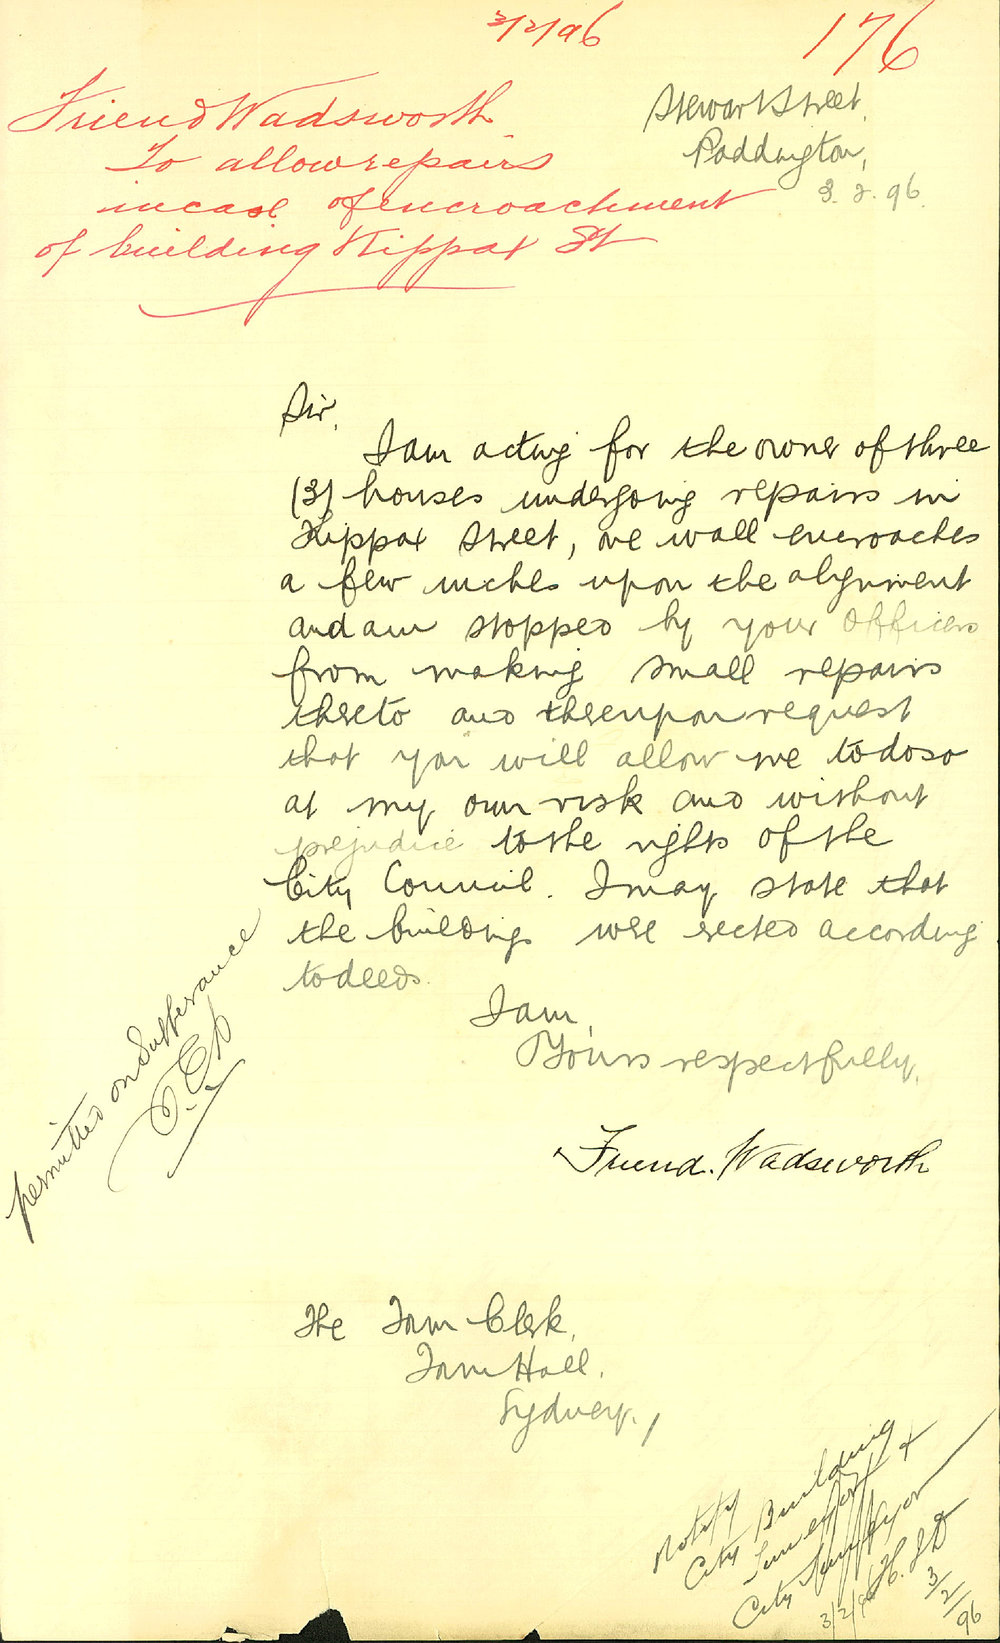 3/2/96
176
Friend Wadsworth
To allow repairs
in case of encroachment
of building Kippax St
Stewart Street,
Paddington,
3.2.96.
Sir,
I am acting for the owner of three
(3) houses undergoing repairs in
Kippax Street, one wall encroaches
a few inches upon the alignment
and am stopped by your Officers
from making small repairs
thereto and thereupon request
that you will allow me to do so
at my own risk and without
prejudice to the rights of the
City Council. I may state that
the buildings were erected according
to deeds.
I am,
Yours respectfully,
Friend. Wadsworth
permitted on Sufferance
The Town Clerk,
Town Hall.
Sydney.
Notify
City Building
Surveyor &
City Surveyor
3/2/96
3/2/96